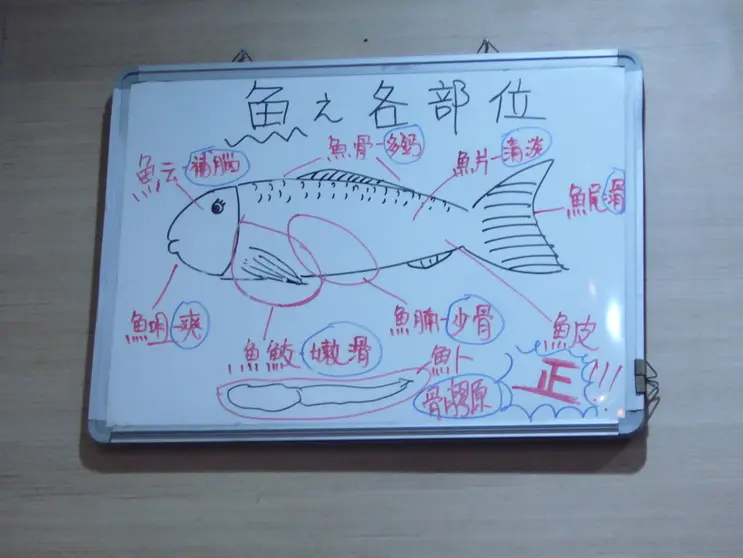 魚之各部位
魚云-補腦
魚骨-多鈣
魚片-清淡
魚尾-滑
魚咀-爽
魚鮫-嫩滑
魚腩-少骨
魚皮
魚卜
骨膠原
正!!!